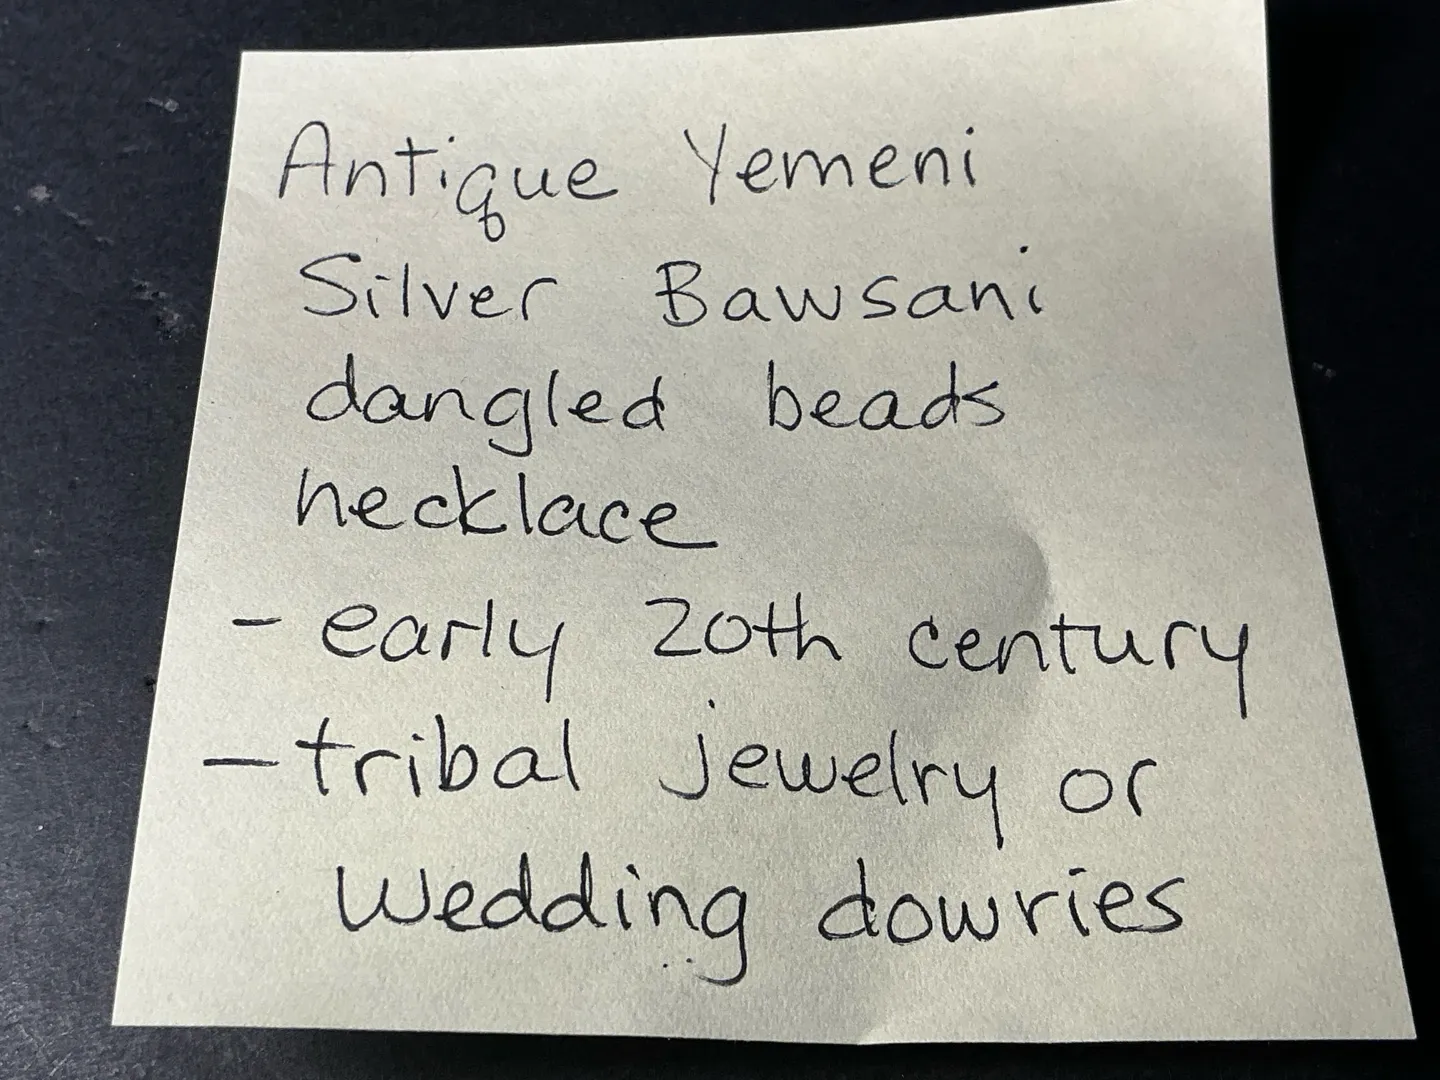 Antique Yemeni
Silver Bawsani
dangled beads
necklace
- early 20th century
- tribal jewelry or
wedding dowries